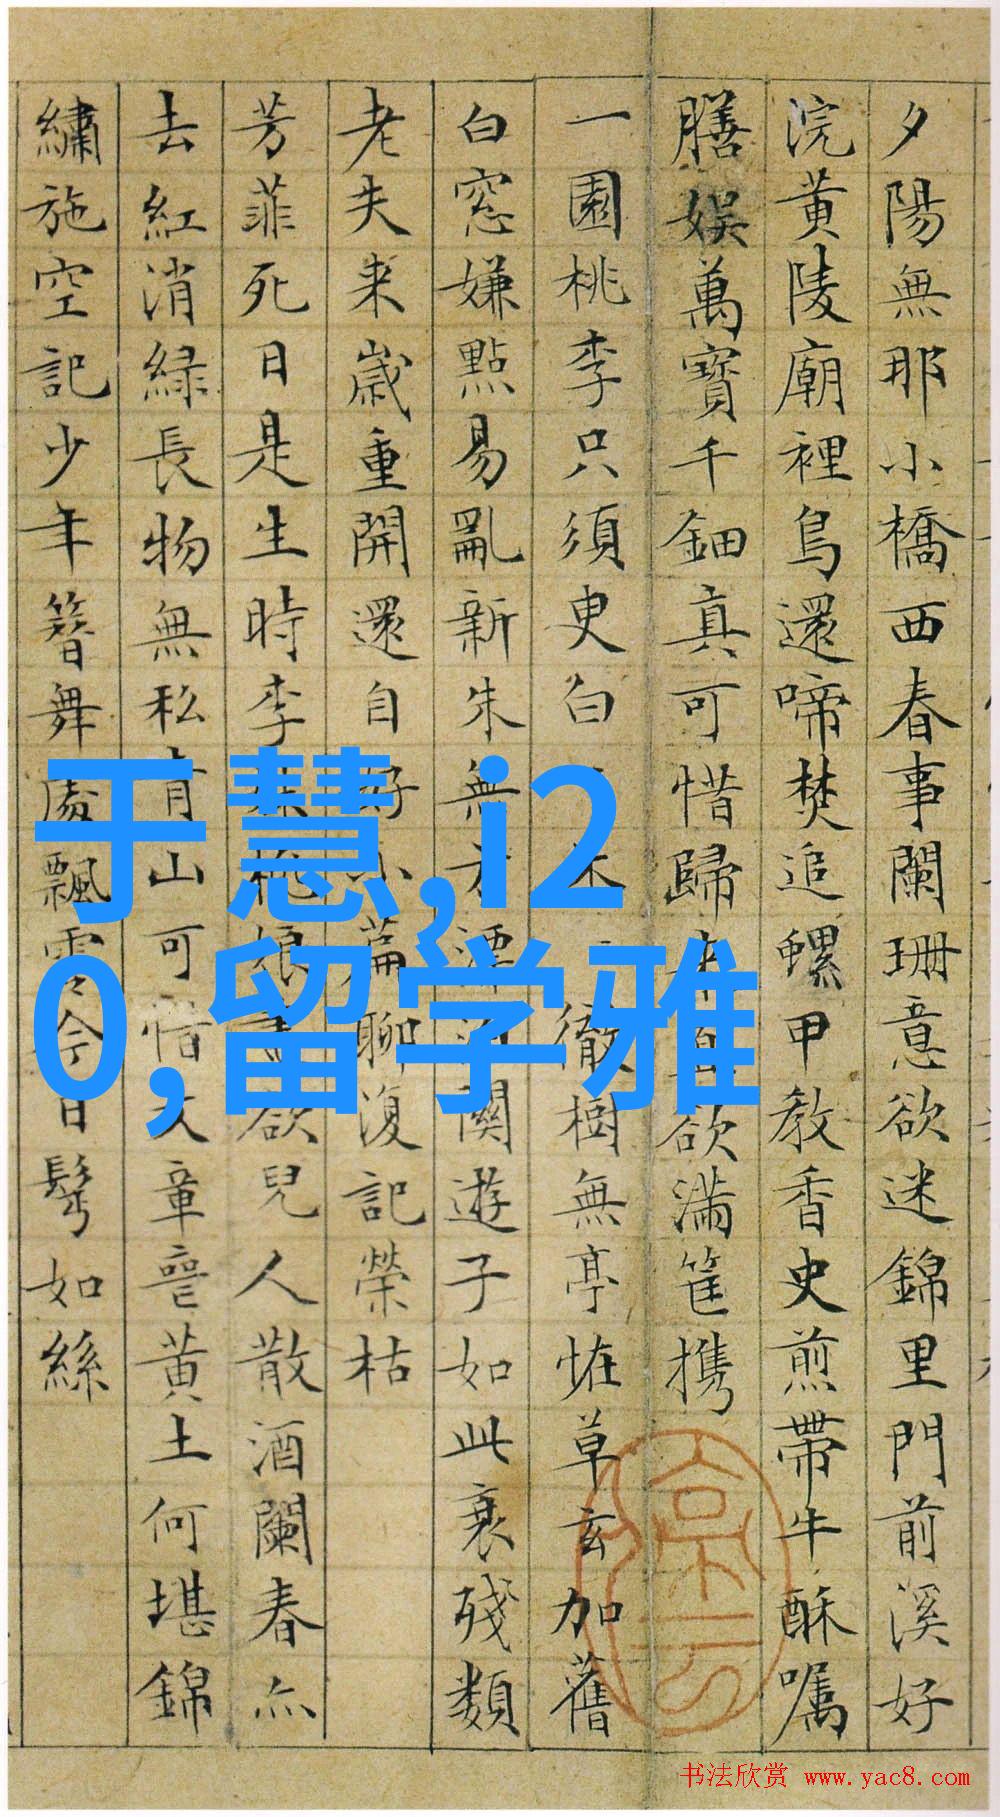 夕陽無那小橋西春事闌珊意欲迷錦里門前溪好
浣黄陵廟裡鳥還啼焚追螺甲教香史煎帶牛酥嘱
膳娱萬寶千鈿真可惜歸来直欲满筐携
一園桃李只須臾白徹樹無亭恠草玄加舊
白窓嫌點易亂新朱無方漂關遊子如此衰殘類
老夫来歲重開還自好小篇聊復記榮枯
芳菲死日是生時李娘欲兒人散酒闌春亦
去紅消緑長物無私青山可惜文章㱠黄土何堪錦
繡施空記少年簪舞處飄零今日鬂如絲
于慧,i2
0,留学雅
书法欣赏 www.yac8.com